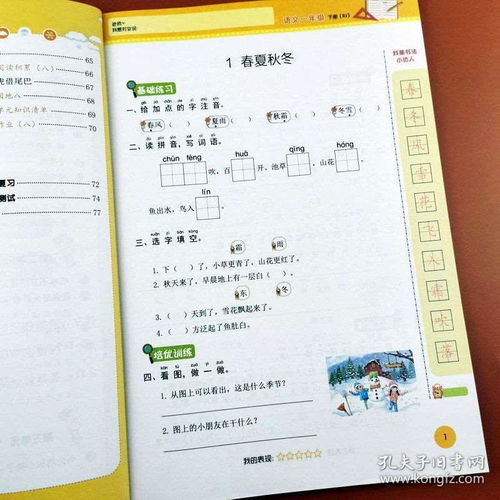 65
阅读积累（八） 66
虎借尾巴 67
园地八 68
单元知识清单 69
作业（八） 70
复习 72
测试 74
77
班级：
我最好交回：
语文一年级 下册（RJ）
1 春夏秋冬
基础练习
一、给加点的字注音。
春风（ ） 夏雨（ ） 秋霜（ ） 冬雪（ ）
二、读拼音，写词语。
chūn fēng huā qīng hóng
吹，百 开。池草 ，山花
lín
鱼出水，鸟入 。
三、选字填空。
霜 雨
1. 下（ ）了，小草更青了，山花更红了。
2. 秋天来了，早晨地上有一层白（ ）。
东 冬
3.（ ）天到了，雪花飘起来了。
4.（ ）方泛起了鱼肚白。
培优训练
四、看图，做一做。
1. 从图上可以看出，这是什么季节？
2. 图上的小朋友在干什么？
我的表现：☆☆☆☆☆
1
我是书法
小达人
春
冬
风
雪
花
飞
入
霜
吹
落
孔夫子旧书网
www.kongfz.com